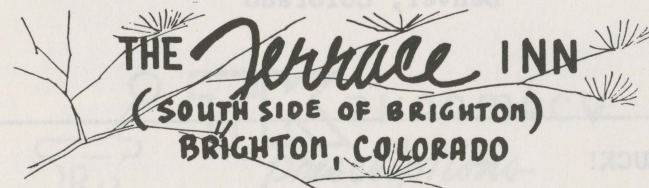 THE Terrace INN
(SOUTH SIDE OF BRIGHTON)
BRIGHTON, COLORADO